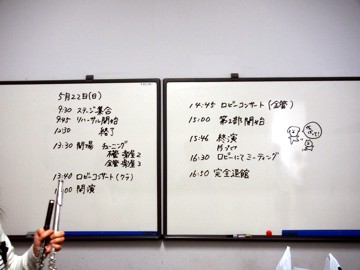 5月22日(日)
9:30 ステージ集合
9:45 リハーサル開始
12:30 終了
13:30 開場 チューニング
木管 楽屋2
金管 楽屋3
13:40 ロビーコンサート(クラ)
:00 開演
14:45 ロビーコンサート(金管)
15:00 第2部開始
15:46 終演
16:30 ロビーにてミーティング
16:50 完全退館